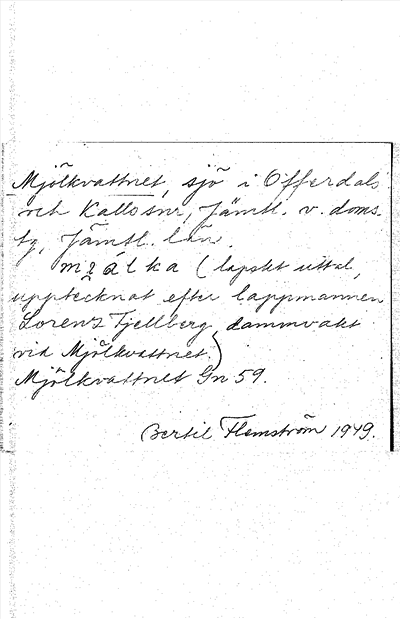 Mjölkvattnet, sjö i Offerdals
och Kallo snr, Jämtl. v. doms.
tg, Jämtl. län.
mi̯älka (lapskt uttal,
upptecknat efter lappmannen
Lorenz Fjellberg, dammvakt
vid Mjölkvattnet)
Mjölkvattnet Gn 59.
Bertil Flemström 1949.